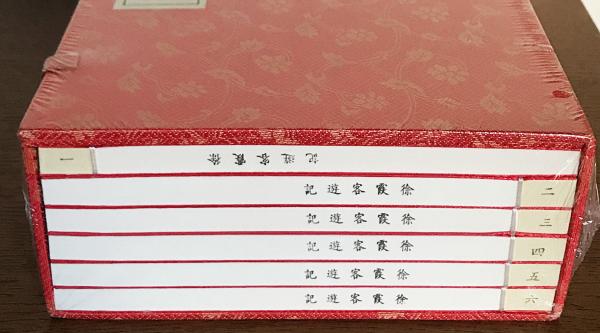 一 徐霞客遊記
二 徐霞客遊記
三 徐霞客遊記
四 徐霞客遊記
五 徐霞客遊記
六 徐霞客遊記